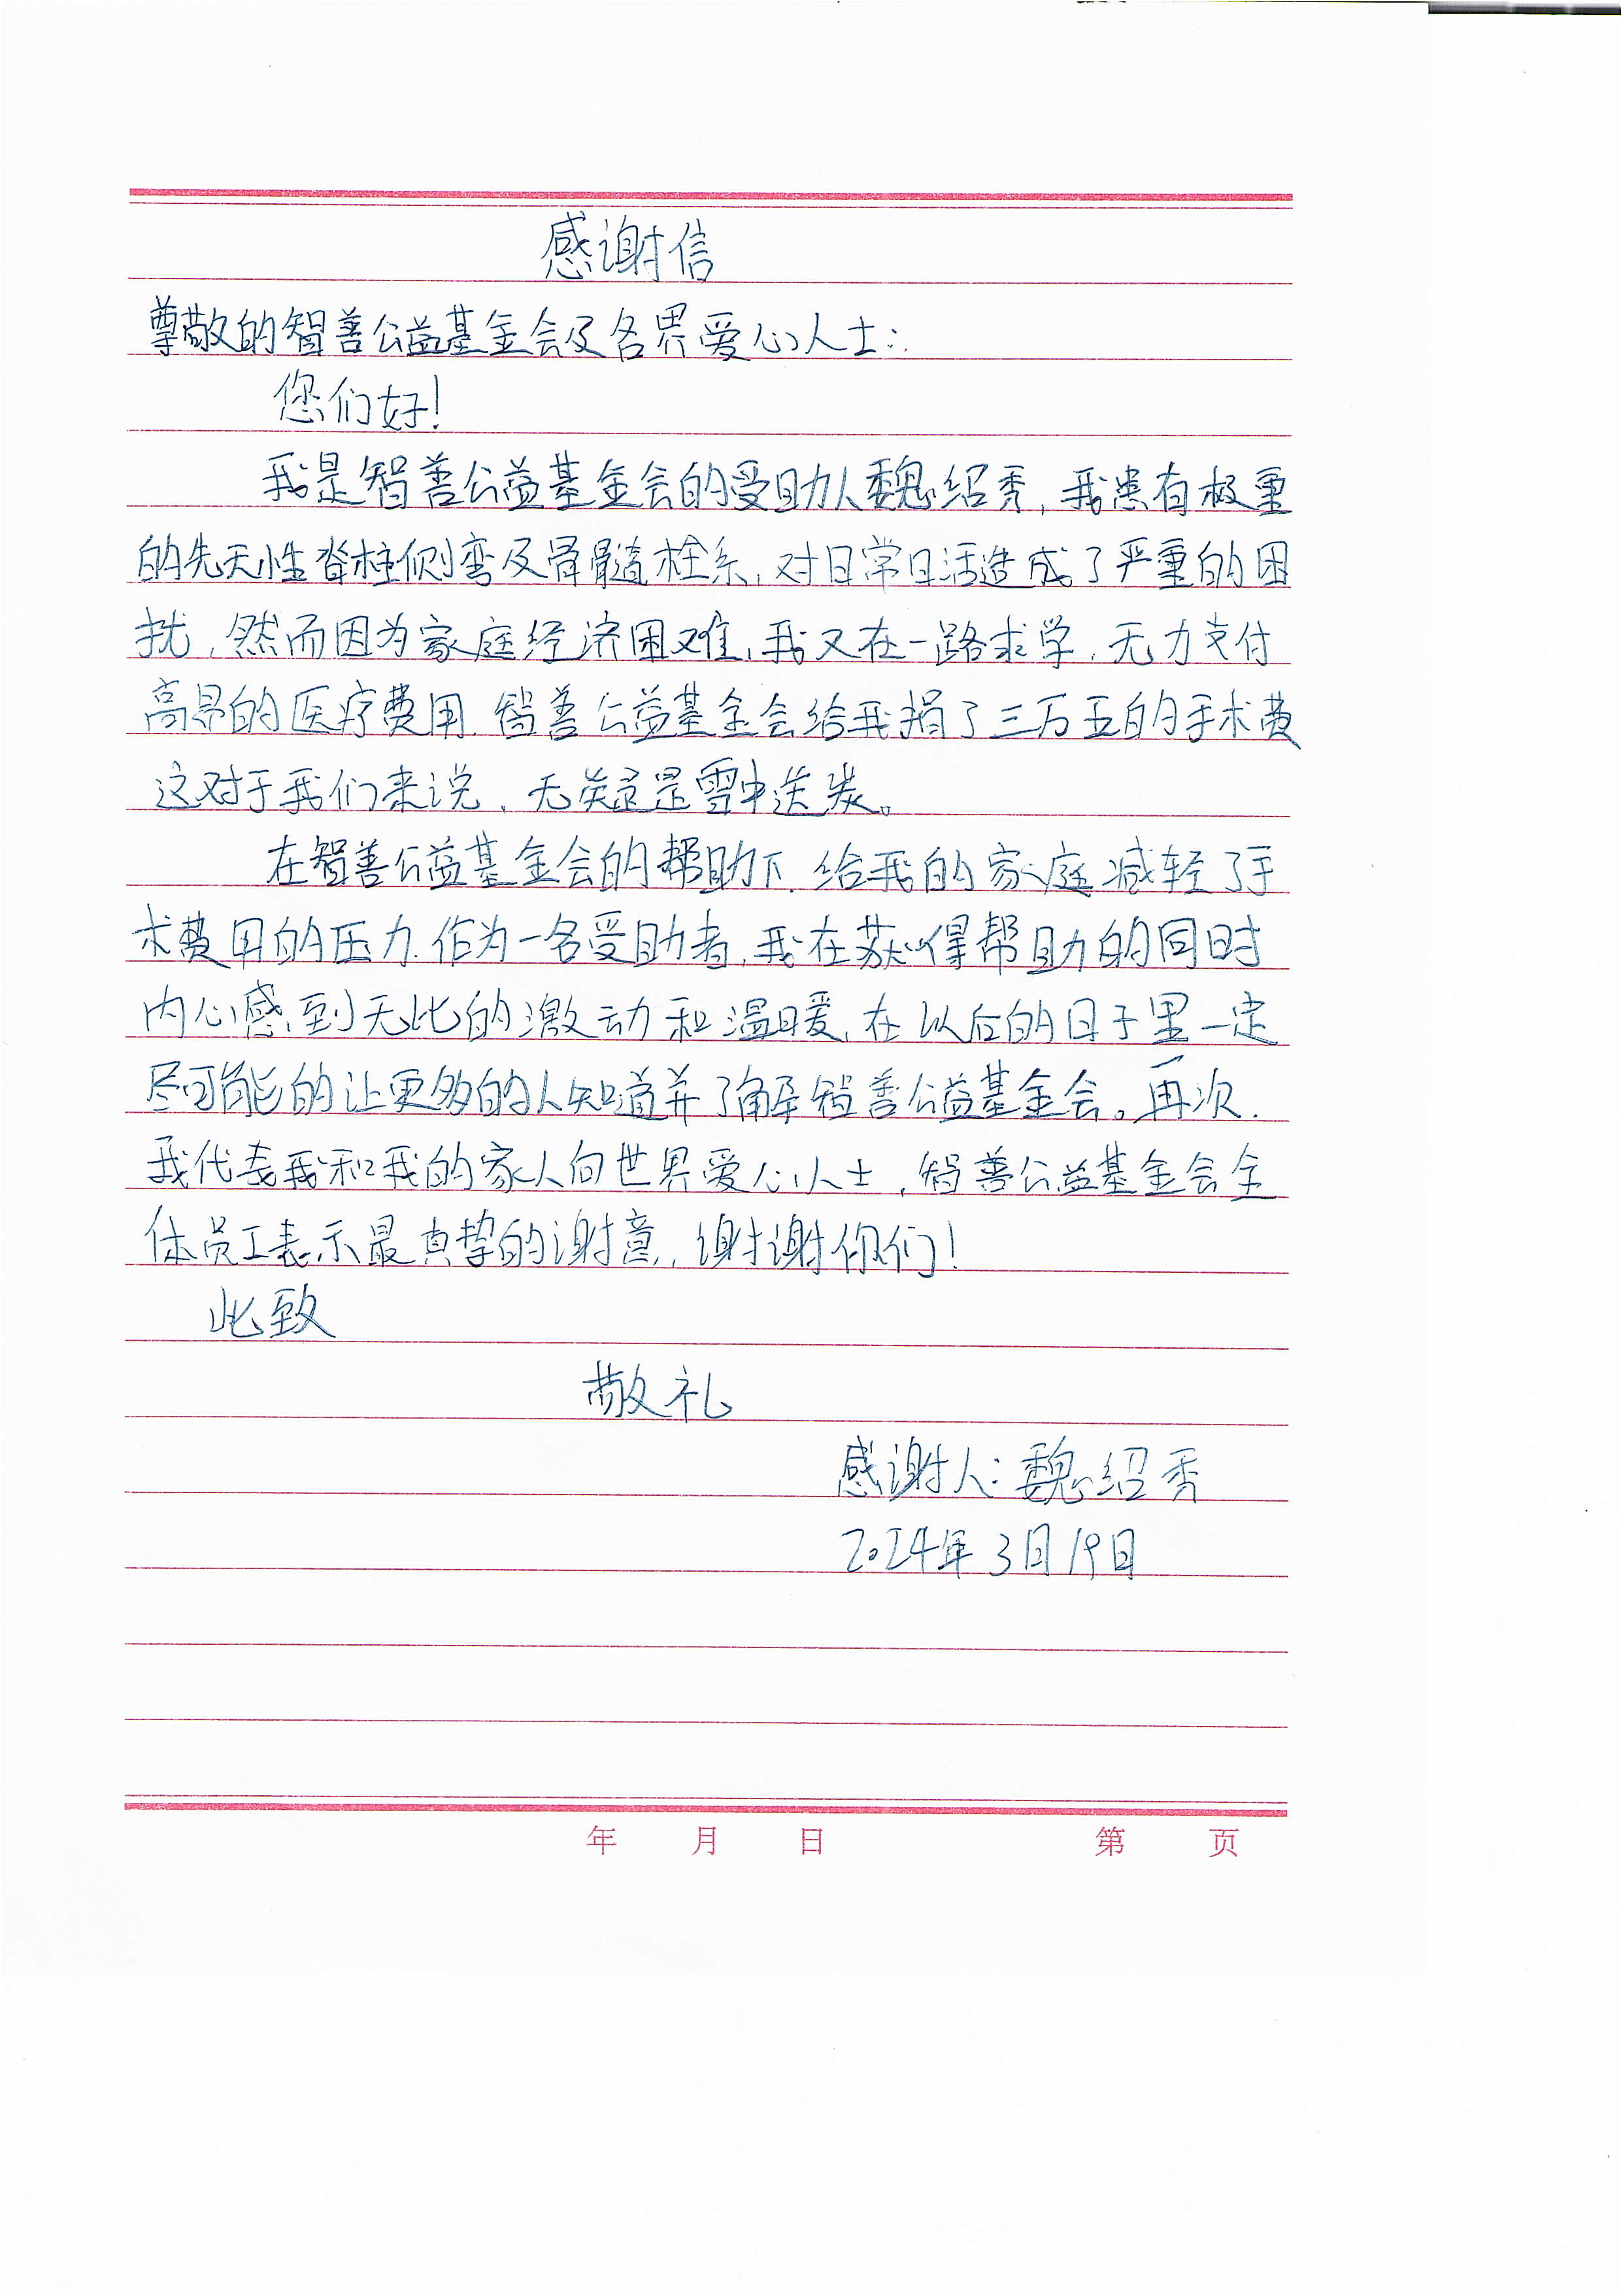 感谢信
尊敬的智善公益基金会及各界爱心人士：
您们好！
我是智善公益基金会的受助人魏绍秀，我患有极重
的先天性脊柱侧弯及骨髓栓系，对日常日活造成了严重的困
扰，然而因为家庭经济困难，我又在一路求学，无力支付
高昂的医疗费用，智善公益基金会给我捐了三万五的手术费
这对于我们来说，无疑是雪中送炭。
在智善公益基金会的帮助下，给我的家庭减轻了手
术费用的压力，作为一名受助者，我在获得帮助的同时
内心感到无比的激动和温暖，在以后的日子里一定
尽可能的让更多的人知道并了解智善公益基金会。再次，
我代表我和我的家人向世界爱心人士，智善公益基金会全
体员工表示最真挚的谢意，谢谢你们！
此致
敬礼
感谢人：魏绍秀
2024年3月19日
年 月 日 第 页